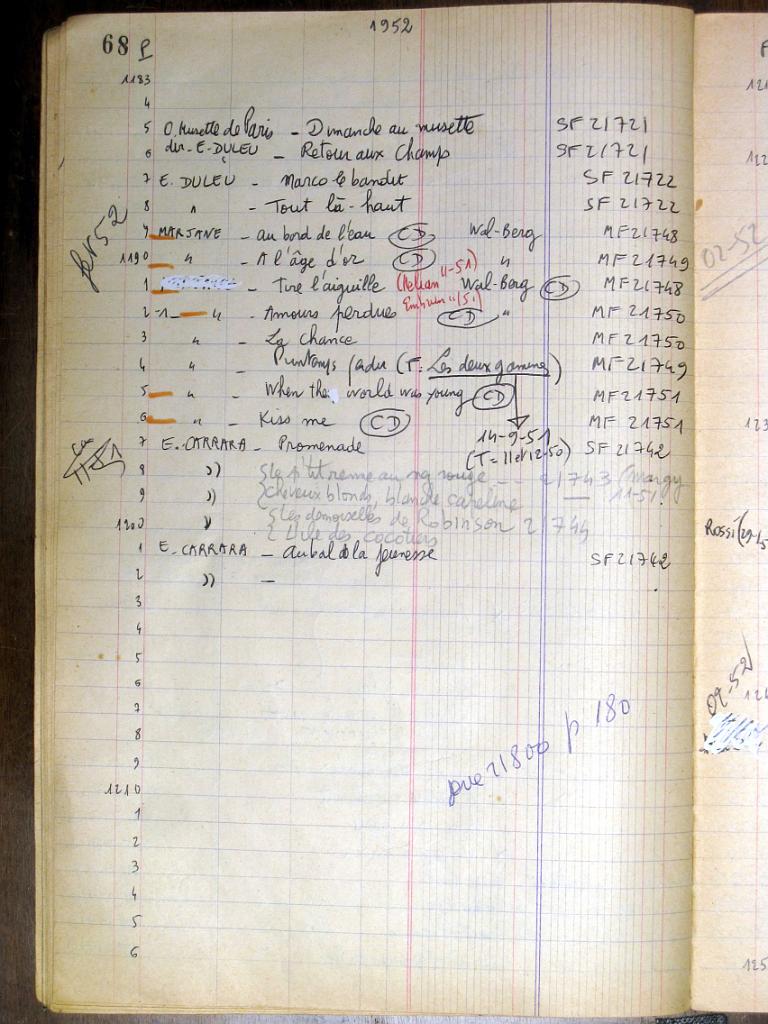 1952
68 P
1183
4
5 O. Musette de Paris - Dimanche au musette SF 21721
6 dir. E. DULEU - Retour aux Champs SF 21721
7 E. DULEU - Marco le bandit SF 21722
8 " - Tout là-haut SF 21722
9 MARJANE - au bord de l'eau CD Wal-Berg MF 21748
1190 " - A l'âge d'or CD " MF 21749
1 - Tire l'aiguille (Hélian 11-51) Wal-Berg CD MF 21748
2 " - Amours perdues CD " MF 21750
3 " - La chance MF 21750
4 " - Printemps perdu (T. Les deux gamines) MF 21749
5 " - When the world was young CD MF 21751
6 " - Kiss me CD MF 21751
14-9-51
7 E. CARRARA - Promenade SF 21742
(T = 11 et 12-50)
8 " 21743
9 " cheveux blonds, blanche caroline 11-51
1200 " Les demoiselles de Robinson 21744
L'île des cocotiers
1 E. CARRARA - Au bal de la jeunesse SF 21742
2 " -
3
4
5
6
7
8
9
1210
1
2
3
4
5
6
21800 p 180
02-52
Rossi
02-52